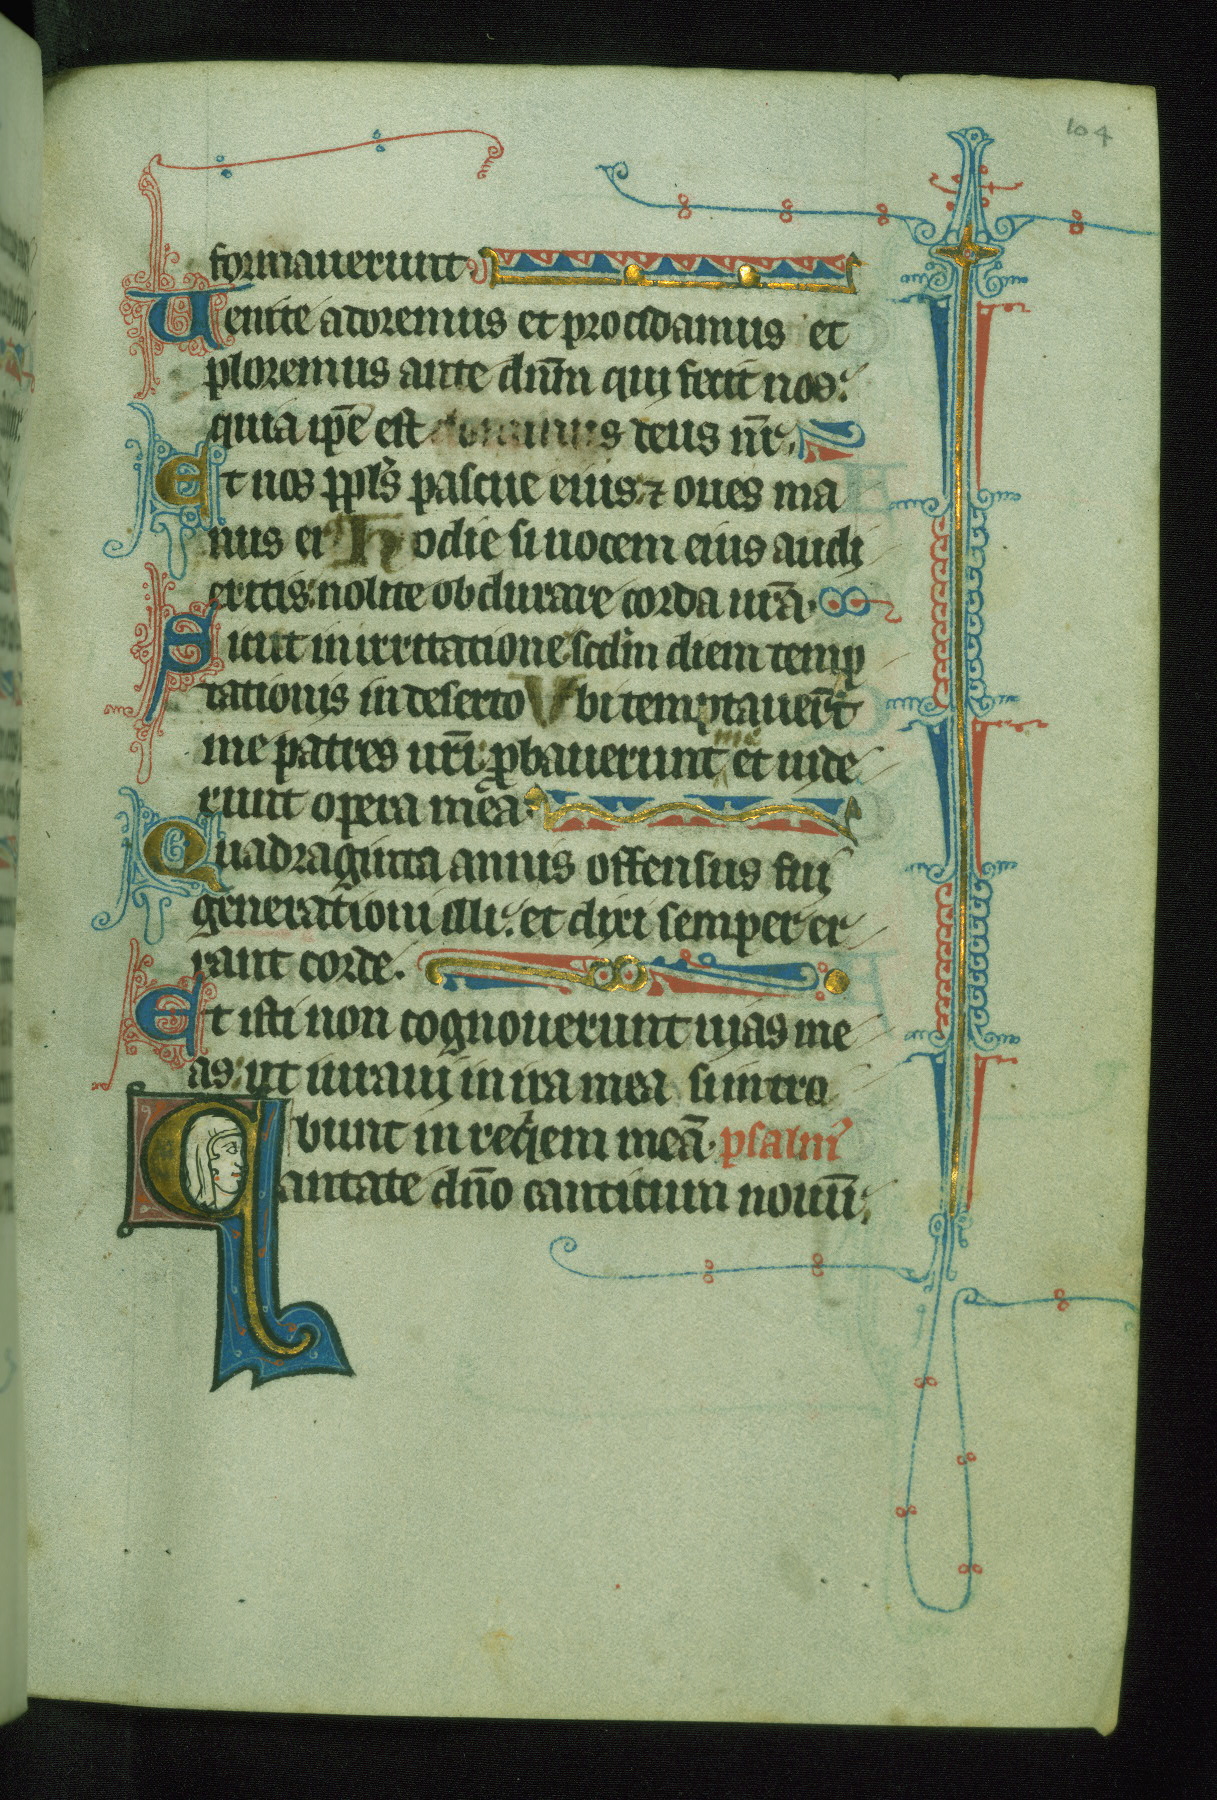 104
formauerunt
Venite adoremus et procidamus et
ploremus ante dn̄m qui fecit nos:
quia ip̄e est dominus deus nr̄
Et nos ppl̄s pascue eius ⁊ oues ma
nus ei Hodie si uocem eius audi
eritis: nolite obdurare corda ur̄a
Sicut in irritatione scd̄m diem temp
tationis in deserto Vbi temptauer̄t
me patres ur̄i: ꝓbauerunt me et uide
runt opera mea
Quadraginta annis offensus fui
generationi illi: et dixi semper er
rant corde.
Et isti non cognouerunt uias me
as: ut iuraui in ira mea si intro
bunt in req̄em meā psalm᾽
Cantate dn̄o canticum nouū